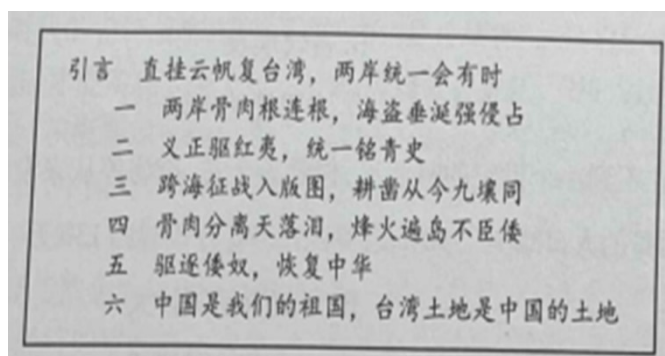 引言 直挂云帆复台湾，两岸统一会有时
一 两岸骨肉根连根，海盗垂涎强侵占
二 义正驱红夷，统一铭青史
三 跨海征战入版图，耕凿从今九壤同
四 骨肉分离天落泪，烽火遍岛不臣倭
五 驱逐倭奴，恢复中华
六 中国是我们的祖国，台湾土地是中国的土地